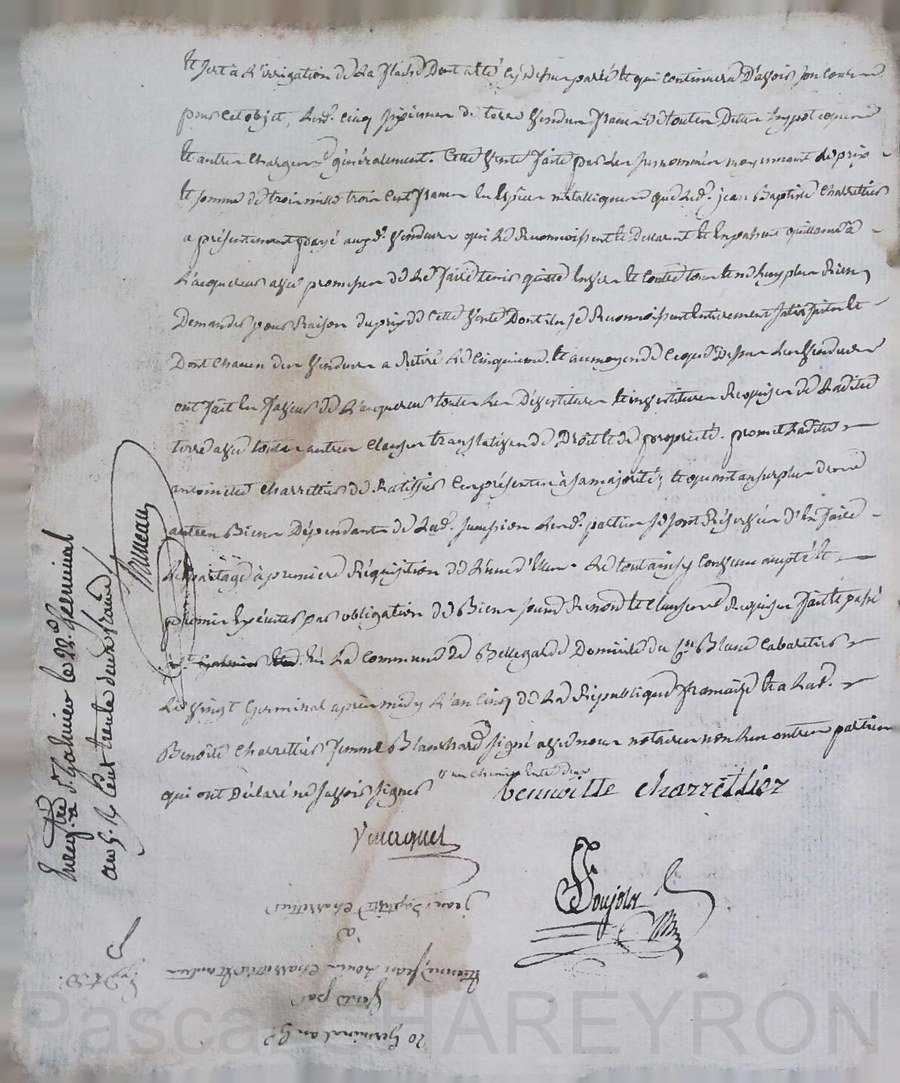 et sert à l'irrigation de la
pour cet objet, lesd. cinq sixiemes de terre vendus francs de toutes dettes hypoteques
et autres charges généralement. Cette vente faite par les surnommés moyennant le prix
et somme de trois mille trois cent francs en espèces metalliques que led. jean Baptiste Charretier
a présentement payé auxd. vendeurs qui le reconnoissent le declarent et en passent quittance à
l'acquereur avec promesse de le faire tenir quitte envers et contre tous et ne luy plus rien
Demander pour raison du prix de cette vente dont ils se reconnoissent entierement satisfaits et
Dont chacun des vendeurs a retiré le cinquieme, et au moyen de ce que dessus les vendeurs
ont fait en faveur de l'acquereur toutes les dévestitures et investitures requises de ladite
terre avec toutes autres clauses translatives de droit et de propriété. promet ladite
antoinette Charretier de ratifier ces présentes à sa majorité, et quant au surplus des
autres Biens Dépendants de lad. succession lesd. parties se sont réservées d'en faire
le partage à premiere réquisition de l'une d'elles. Le tout ainsy convenu accepté et
promis executer par obligation de Biens soumis renoncé et clauses requises fait et passé
en la commune de Bellegarde Domicile du Cen Blanc Cabaretier
le vingt Germinal après midy l'an cinq de la République française et a lad.
Benoite Charretier femme Blanchard signé avec nous notaires non les autres parties
qui ont declaré ne savoir signer
Bennoitte charrettier
jean Baptiste Charretier
à
jean Louis Charretier et autres
Vente par
20 Germinal an 5e
Enreg.tré à St Galmier le 22. Germinal
an 5. Rt cent trente deux francs
Pascal CHAREYRON